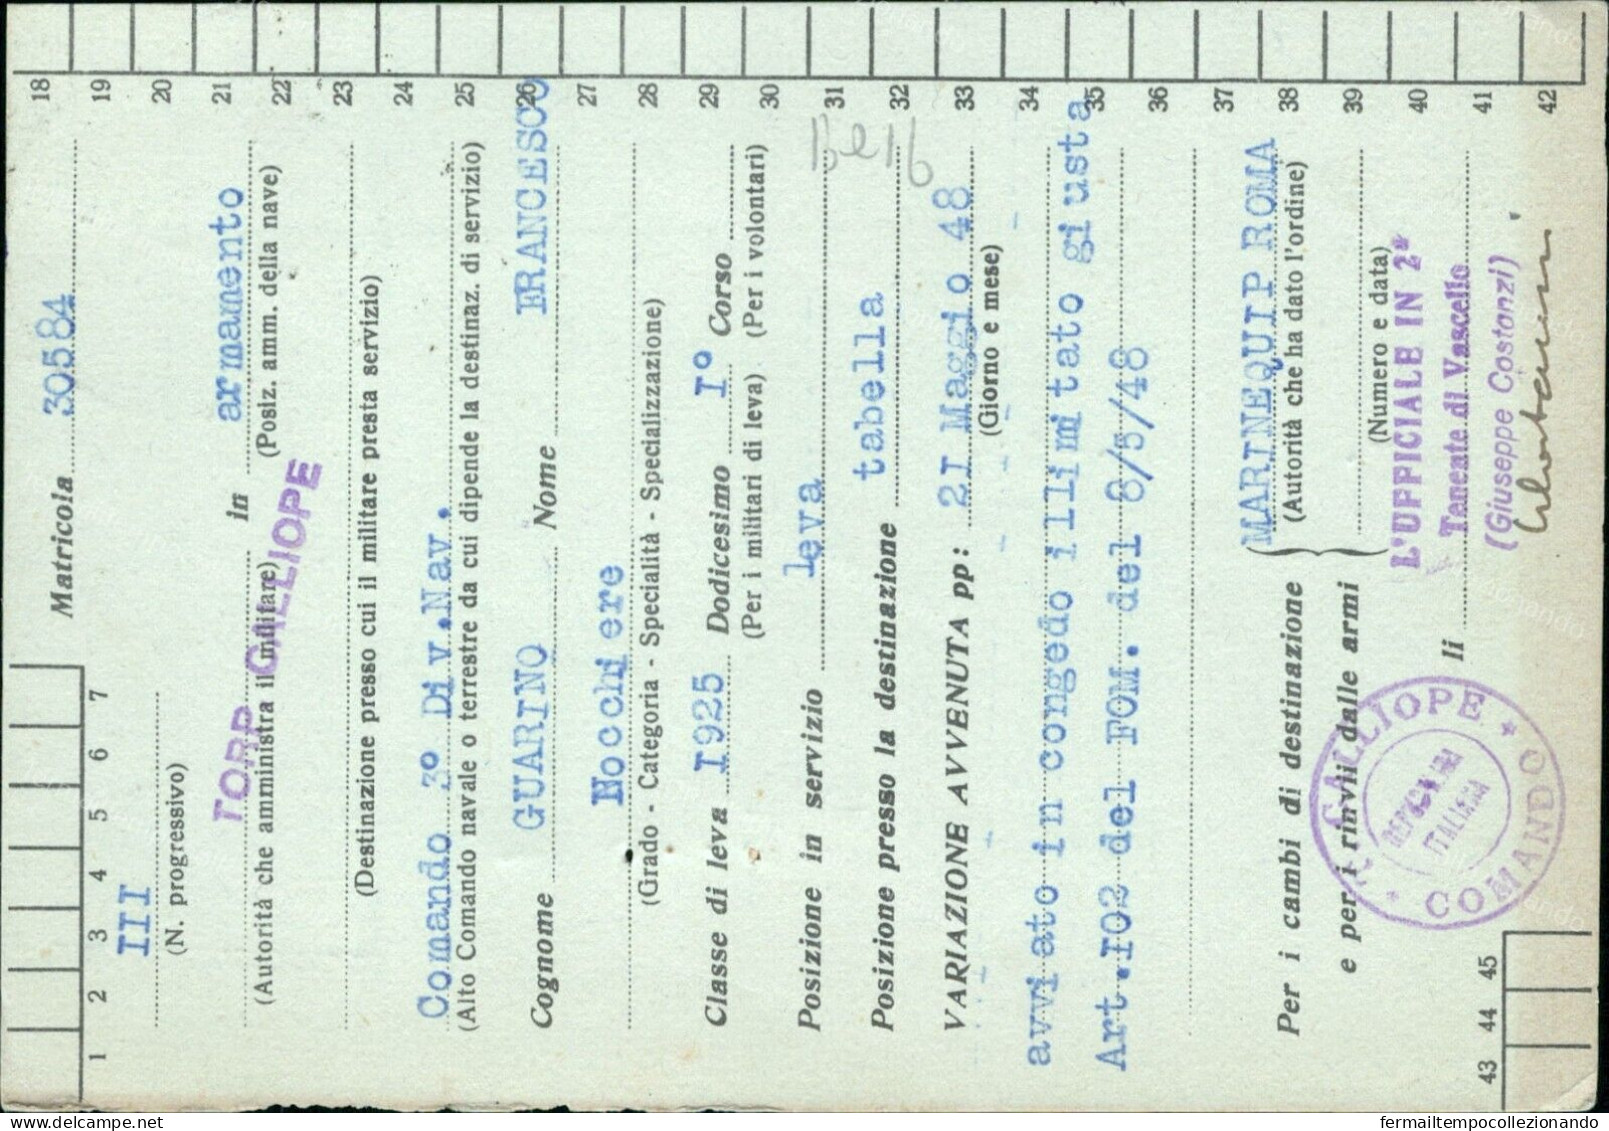 18 19 20 21 22 23 24 25 26 27 28 29 30 31 32 33 34 35 36 37 38 39 40 41 42
1 2 3 4 5 6 7
Matricola 30584
III
(N. progressivo)
TORP CALLIOPE in armamento
(Autorità che amministra il militare) (Posiz. amm. della nave)
(Destinazione presso cui il militare presta servizio)
Comando 3° Div.Nav.
(Alto Comando navale o terrestre da cui dipende la destinaz. di servizio)
Cognome GUARINO Nome FRANCESCO
Nocchiere
(Grado - Categoria - Specialità - Specializzazione)
Classe di leva I925 Dodicesimo I° Corso
(Per i militari di leva) (Per i volontari)
Posizione in servizio leva
Posizione presso la destinazione tabella
VARIAZIONE AVVENUTA pp: 2I Maggio 48
(Giorno e mese)
avviato in congedo illimitato giusta
Art.I02 del FOM. del 8/5/48
Per i cambi di destinazione
e per i rinvii dalle armi
MARINEQUIP ROMA
(Autorità che ha dato l'ordine)
(Numero e data)
L'UFFICIALE IN 2ª
Tenente di Vascello
(Giuseppe Costanzi)
li
CALLIOPE * COMANDO *
ITALIANA
43 44 45
fermailtempocollezionando